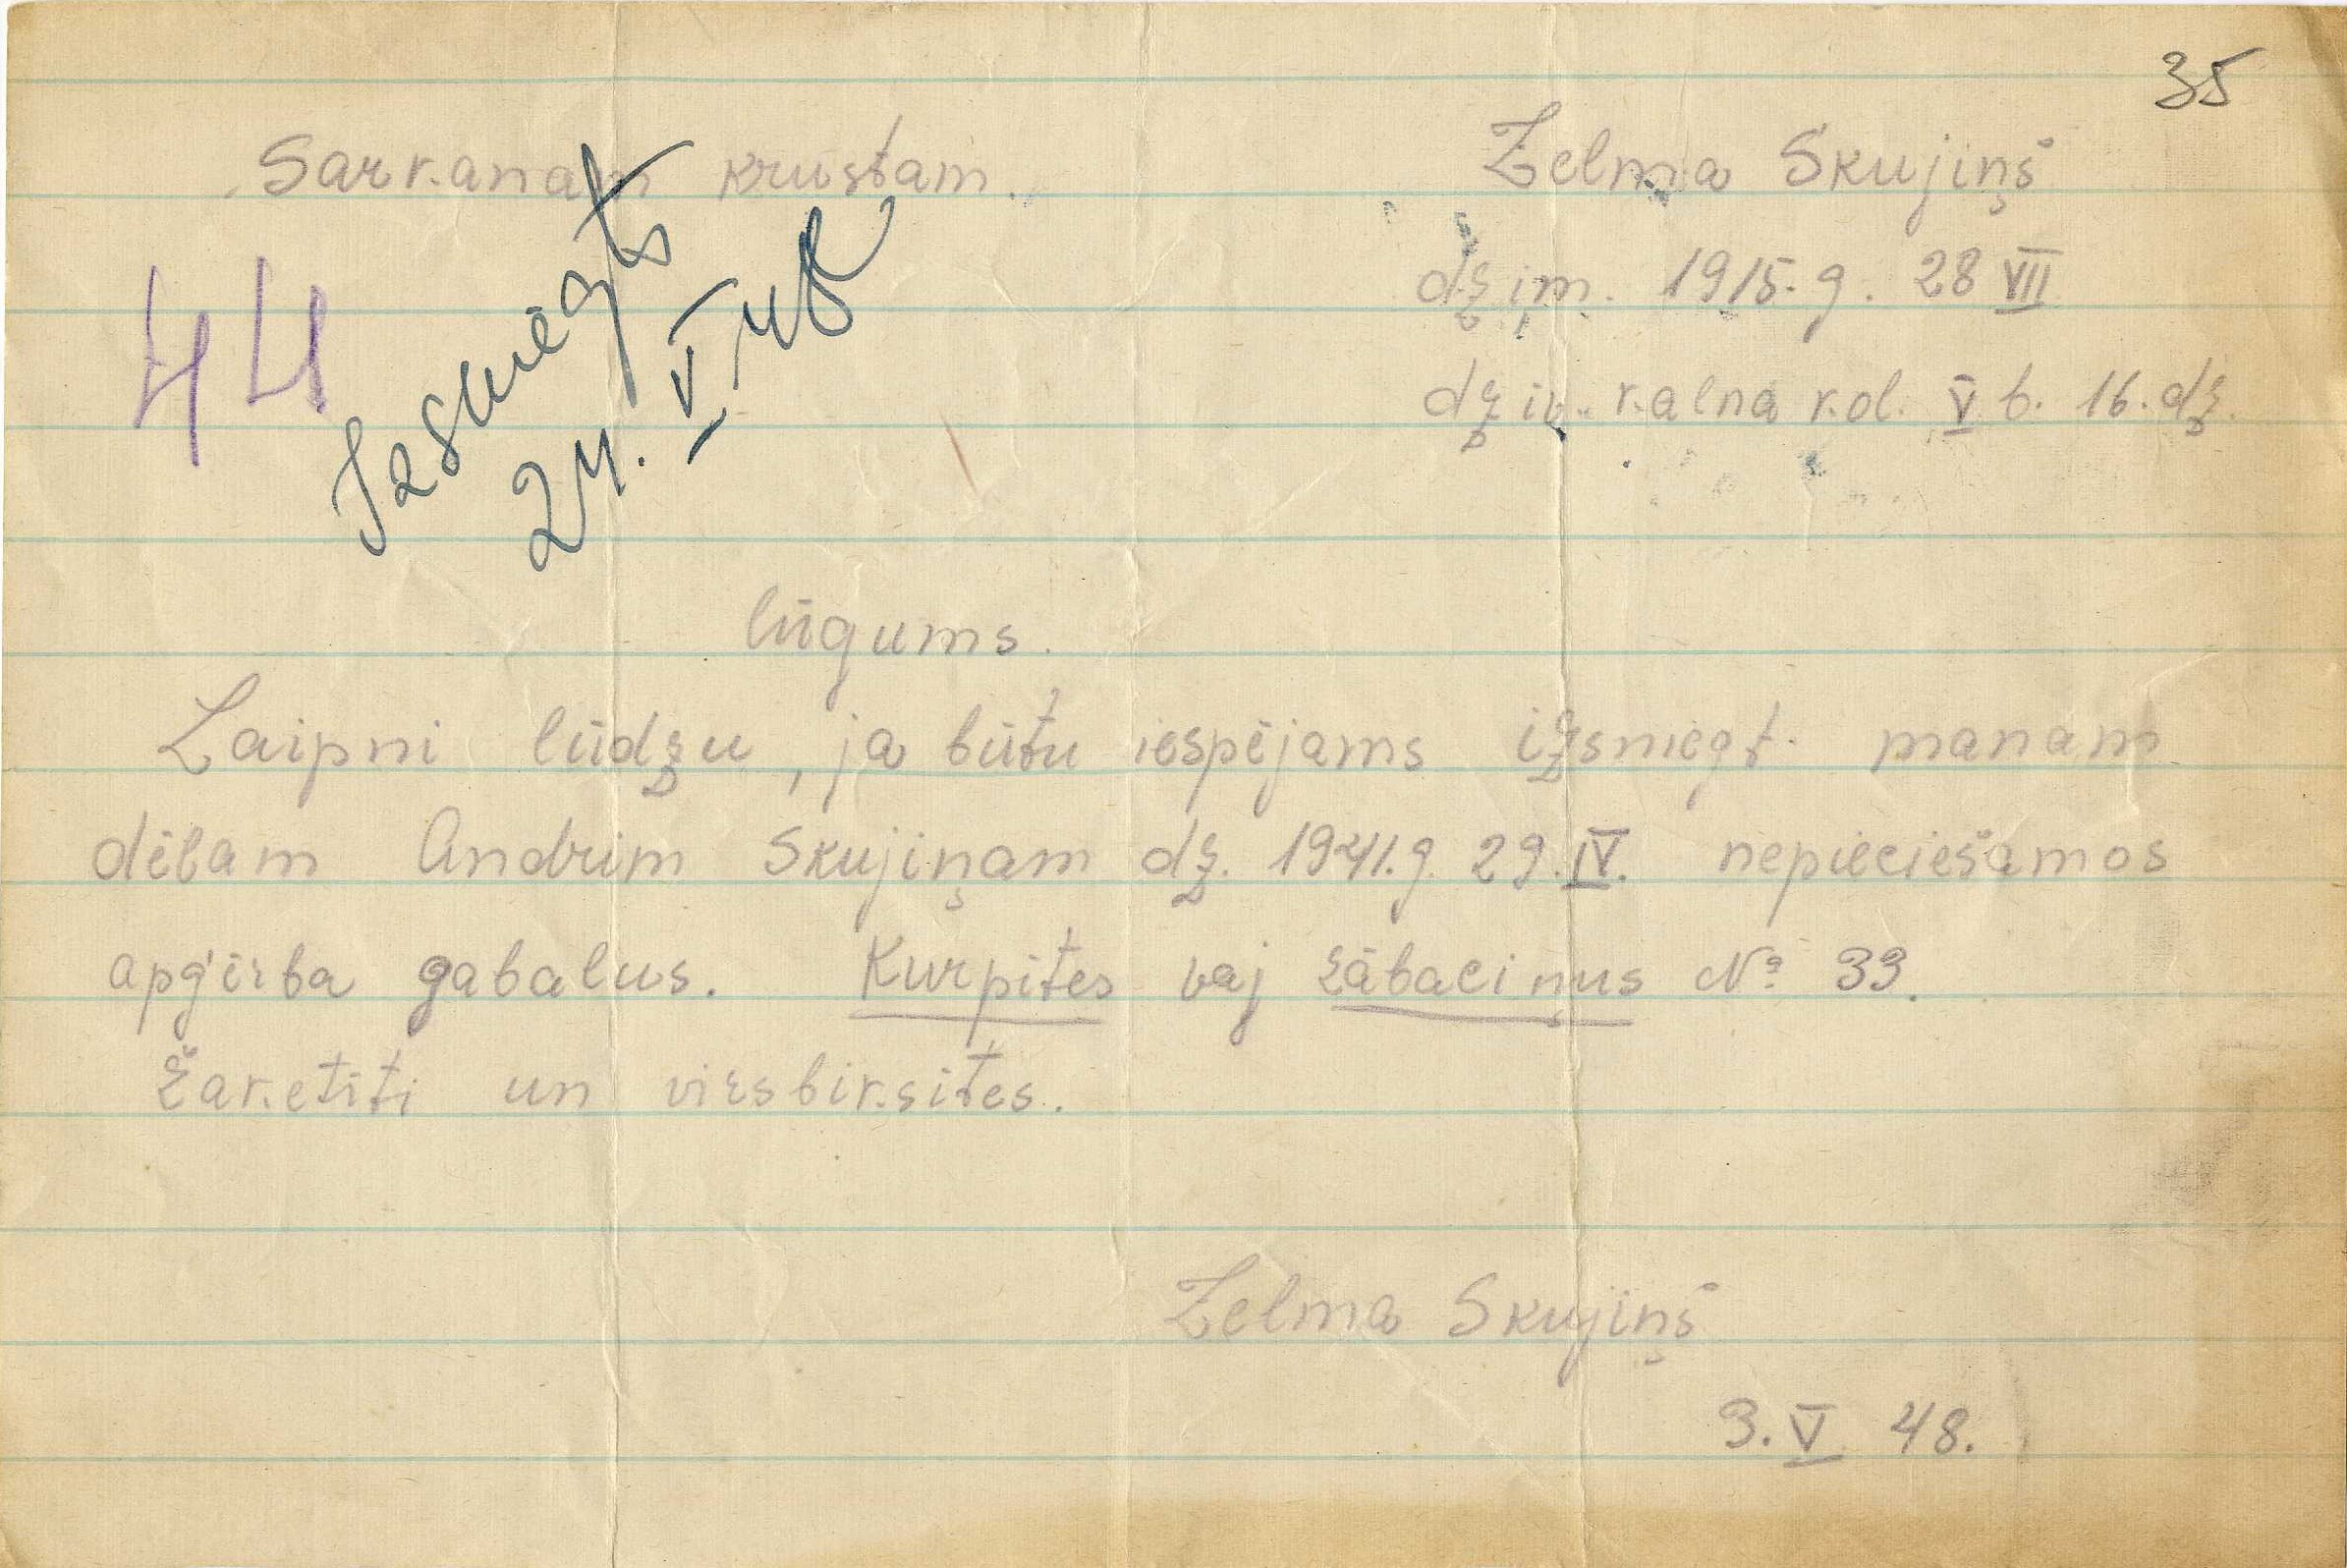 35
Sarkanam krustam.
Zelma Skujiņš
dzim. 1915. g. 28 VII
dziv. kalna kol. V b. 16. dz.
44
Izsniegts
24. V 48
lūgums.
Laipni lūdzu, ja būtu iespējams izsniegt manam
dēlam Andrim Skujiņam dz. 1941. g. 29. IV. nepieciešamos
apģērba gabalus. Kurpītes vaj zābaciņus № 33.
Žaketīti un virsbiksītes.
Zelma Skujiņš
3. V 48.